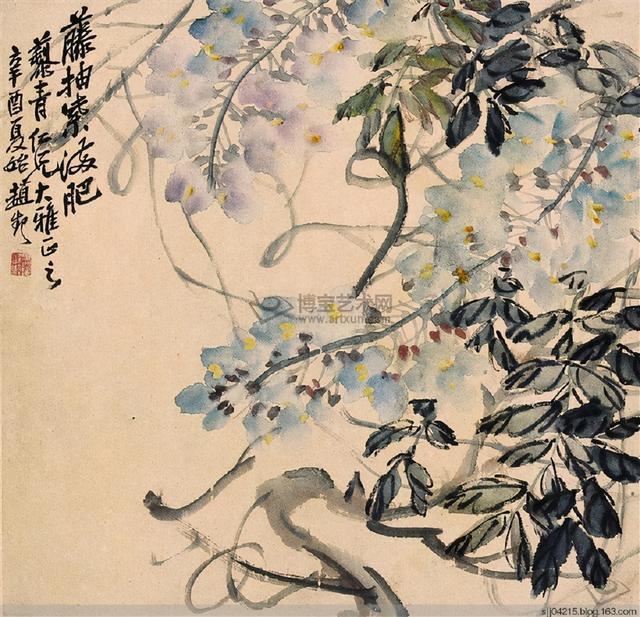 藤抽紫海肥
藜青仁兄大雅正之
辛酉夏始趙起
博宝艺术网
www.artxun.com
sjj04215.blog.163.com